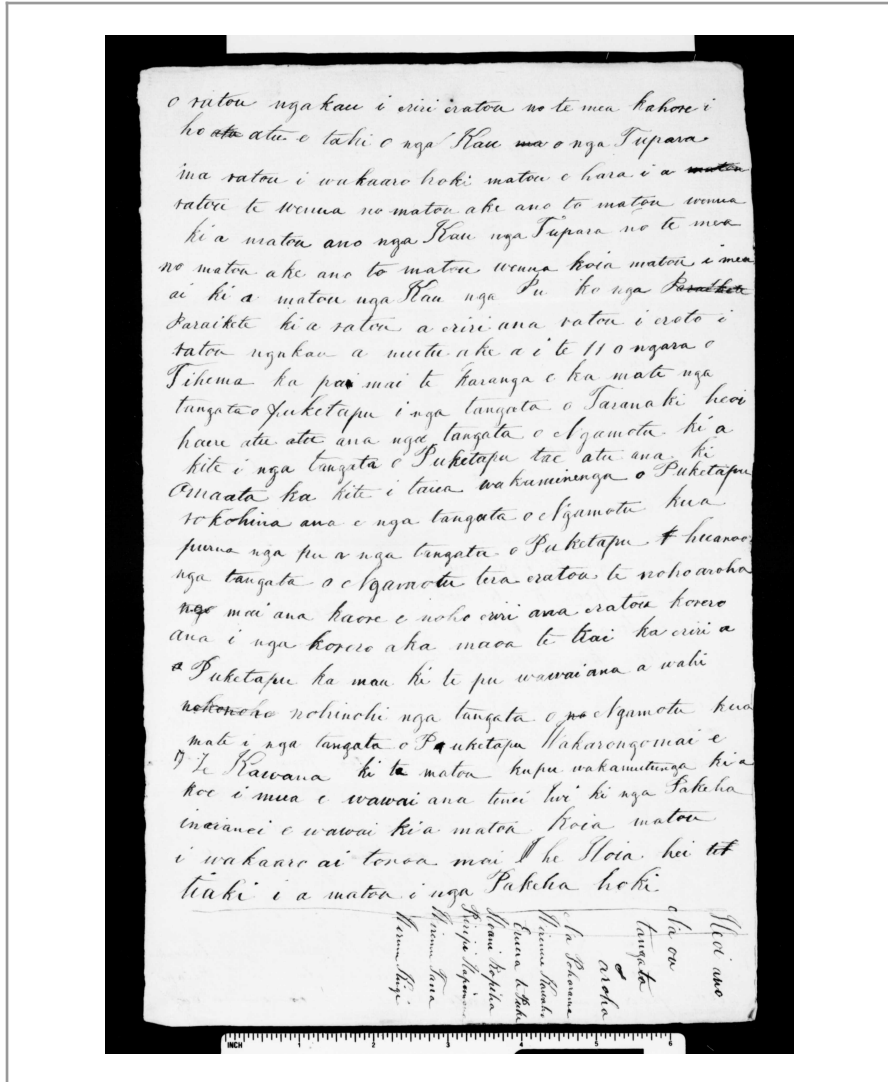 o ratou ngakau i eriri eratou no te mea kahore i
ho ata atu e tahi o nga Kau ma o nga Tupara
ma ratou i wakaaro hoki matou e hara i a matou
ratou te wenua no matou ake ano to matou wenua
ki a matou ano nga Kau nga Tupara no te mea
no matou ake ano to matou wenua koia matou i mea
ai ki a matou nga Kau nga Pu ko nga Paraikete
Paraikete ki a ratou a eriri ana ratou i eroto i
ratou ngakau a mutu ake a i te 11 o ngara o
Tihema ka pai mai te karanga e ka mate nga
tangata o Puketapu i nga tangata o Taranaki heoi
haere atu atu ana nga tangata o Ngamotu ki a
kite i nga tangata o Puketapu tae atu ana ki
Omaata ka kite i taua wakaminenga o Puketapu
rokohina ana e nga tangata o Ngamotu kua
purua nga pu a nga tangata o Puketapu huanoa
nga tangata o Ngamotu tera eratou te noho aroha
mai ana kaore e noho eriri ana eratou korero
ana i nga korero aka maoa te kai ka eriri a
a Puketapu ka mau ki te pu wawai ana a wahi
nohonoho nohinohi nga tangata o no Ngamotu kua
mate i nga tangata o Pauketapu Wakarongo mai e
Te Kawana ki ta matou kupu wakamutunga ki a
koe i mua e wawai ana tenei Iwi ki nga Pakeha
inaianei e wawai ki a matou koia matou
i wakaaro ai tonoa mai he Hoia hei
tiaki i a matou i nga Pakeha hoki
Heoi ano
Na ou
tangata
aroha
Na Poharama
Wiremu
Emera
Hoani Ropiha
Piripi
Wiremu Tana